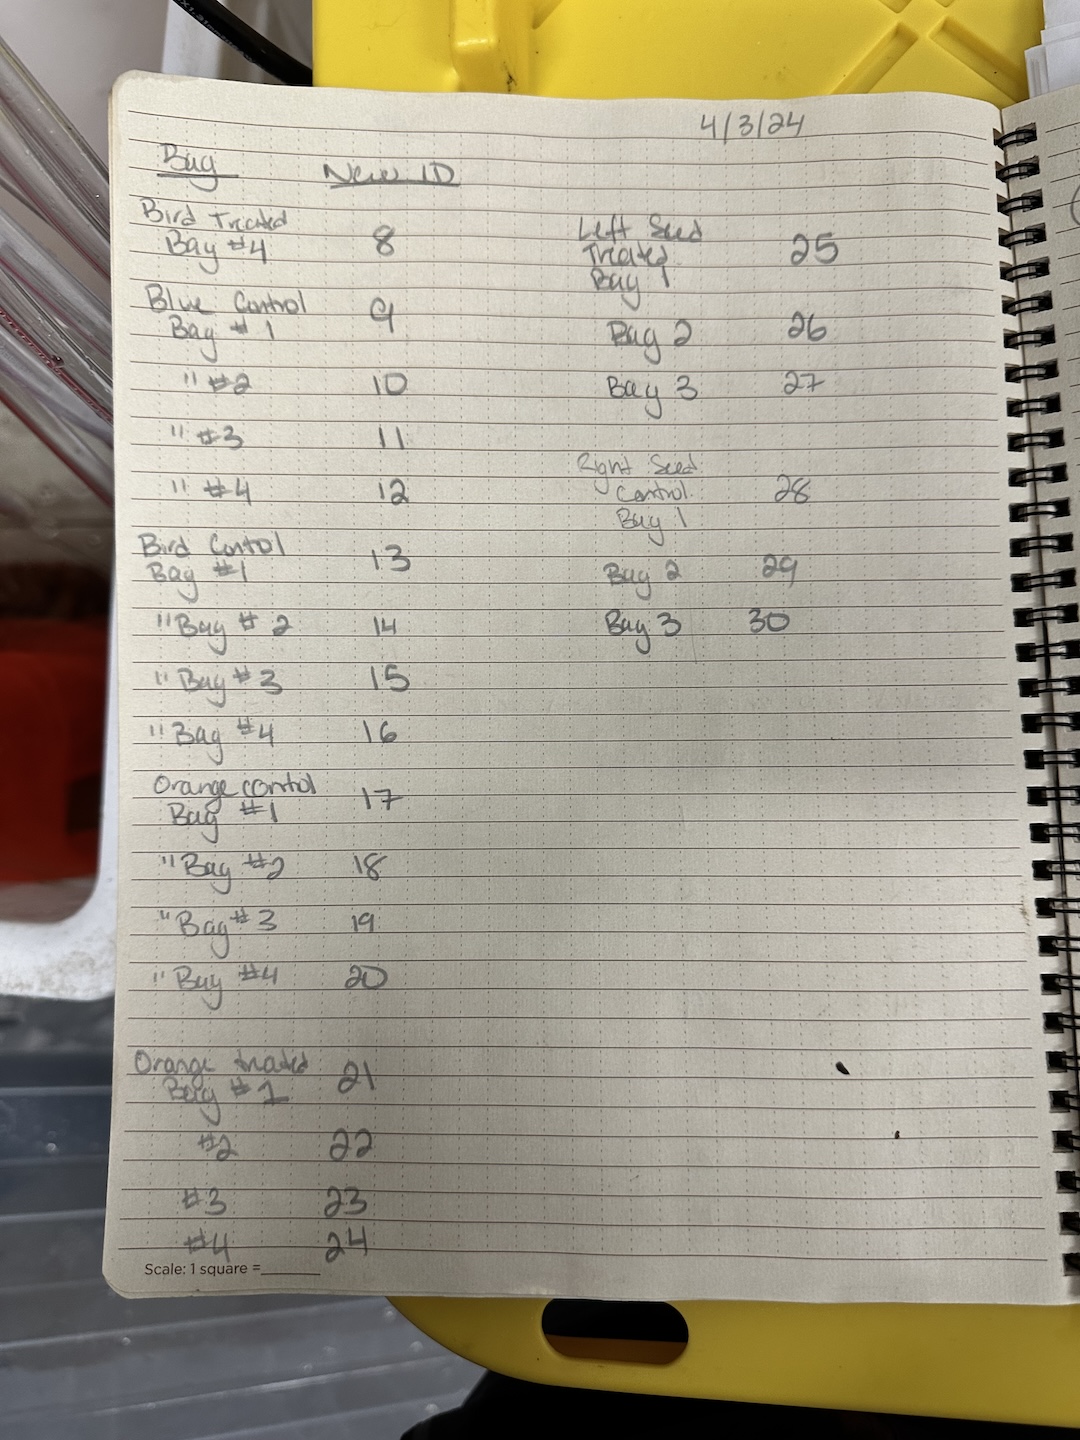 4/3/24
Bag New ID
Bird Treated
Bag #4 8
Blue Control
Bag #1 9
" #2 10
" #3 11
" #4 12
Bird Control
Bag #1 13
" Bag #2 14
" Bag #3 15
" Bag #4 16
Orange control
Bag #1 17
" Bag #2 18
" Bag #3 19
" Bag #4 20
Orange treated
Bag #1 21
#2 22
#3 23
#4 24
Scale: 1 square =______
Left Seed
Treated
Bag 1 25
Bag 2 26
Bag 3 27
Right Seed
Control
Bag 1 28
Bag 2 29
Bag 3 30